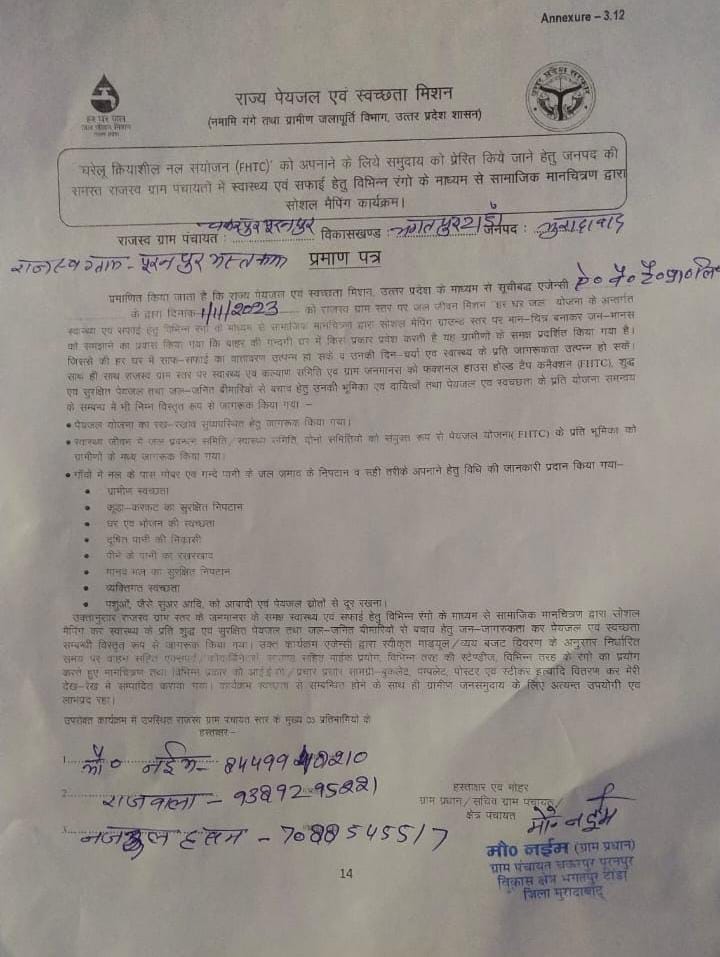 Annexure – 3.12
हर घर जल
जल जीवन मिशन
राज्य पेयजल एवं स्वच्छता मिशन
(नमामि गंगे तथा ग्रामीण जलापूर्ति विभाग, उत्तर प्रदेश शासन)
उत्तर प्रदेश सरकार
'घरेलू क्रियाशील नल संयोजन (FHTC)' को अपनाने के लिये समुदाय को प्रेरित किये जाने हेतु जनपद की
समस्त राजस्व ग्राम पंचायतों में स्वास्थ्य एवं सफाई हेतु विभिन्न रंगो के माध्यम से सामाजिक मानचित्रण द्वारा
सोशल मैपिंग कार्यक्रम।
राजस्व ग्राम पंचायत : चकरपुर पूरनपुर विकासखण्ड : भगतपुर टांडा जनपद : मुरादाबाद
राजस्व ग्राम- पूरनपुर
प्रमाण पत्र
प्रमाणित किया जाता है कि राज्य पेयजल एवं स्वच्छता मिशन, उत्तर प्रदेश के माध्यम से सूचीबद्ध एजेन्सी
के द्वारा दिनांक 1/11/2023 को राजस्व ग्राम स्तर पर जल जीवन मिशन 'हर घर जल' योजना के अन्तर्गत
स्वास्थ्य एवं सफाई हेतु विभिन्न रंगों के माध्यम से सामाजिक मानचित्रण द्वारा सोशल मैपिंग ग्राउन्ड स्तर पर मान-चित्र बनाकर जन-मानस
को समझाने का प्रयास किया गया कि बाहर की गन्दगी घर में किस प्रकार प्रवेश करती है यह ग्रामीणों के समक्ष प्रदर्शित किया गया है।
जिससे की हर घर में साफ-सफाई का वातावरण उत्पन्न हो सके व उनकी दिन-चर्या एवं स्वास्थ्य के प्रति जागरूकता उत्पन्न हो सकें।
साथ ही साथ राजस्व ग्राम स्तर पर स्वास्थ्य एवं कल्याण समिति एवं ग्राम जनमानस को फंक्शनल हाउस होल्ड टैप कनैक्शन (FHTC), शुद्ध
एवं सुरक्षित पेयजल तथा जल-जनित बीमारियों से बचाव हेतु उनकी भूमिका एवं दायित्वों तथा पेयजल एवं स्वच्छता के प्रति योजना समन्वय
के सम्बन्ध में भी निम्न विस्तृत रूप से जागरूक किया गया –
• पेयजल योजना का रख-रखाव सुव्यवस्थित हेतु जागरूक किया गया।
• स्वास्थ्य जीवन में जल प्रबन्धन समिति/स्वास्थ्य समिति, दोनों समितियों को संयुक्त रूप से पेयजल योजना( FHTC) के प्रति भूमिका को
ग्रामीणों के मध्य जागरूक किया गया।
• गाँवों में नल के पास गोबर एवं गन्दे पानी के जल जमाव के निपटान व सही तरीके अपनाने हेतु विधि की जानकारी प्रदान किया गया–
• ग्रामीण स्वच्छता
• कूड़ा-करकट का सुरक्षित निपटान
• घर एवं भोजन की स्वच्छता
• दूषित पानी की निकासी
• पीने के पानी का रखरखाव
• मानव मल का सुरक्षित निपटान
• व्यक्तिगत स्वच्छता
• पशुओं, जैसे सुअर आदि, को आबादी एवं पेयजल स्रोतों से दूर रखना।
उक्तानुसार राजस्व ग्राम स्तर के जनमानस के समक्ष स्वास्थ्य एवं सफाई हेतु विभिन्न रंगो के माध्यम से सामाजिक मानचित्रण द्वारा सोशल
मैपिंग कर स्वास्थ्य के प्रति शुद्ध एवं सुरक्षित पेयजल तथा जल-जनित बीमारियों से बचाव हेतु जन-जागरूकता कर पेयजल एवं स्वच्छता
सम्बन्धी विस्तृत रूप से जागरूक किया गया। उक्त कार्यक्रम एजेन्सी द्वारा स्वीकृत माड्यूल/व्यय बजट विवरण के अनुसार निर्धारित
समय पर वाहन सहित माईक प्रयोग, विभिन्न तरह की स्टेन्डीज, विभिन्न तरह के रंगो का प्रयोग
करते हुए मानचित्रण तथा विभिन्न प्रकार की आई.ई.सी./प्रचार प्रसार सामग्री-बुकलेट, पंम्पलेट, पोस्टर एवं स्टीकर इत्यादि वितरण कर मेरी
देख-रेख में सम्पादित कराया गया। कार्यक्रम स्वच्छता से सम्बन्धित होने के साथ ही ग्रामीण जनसमुदाय के लिए अत्यन्त उपयोगी एवं
लाभप्रद रहा।
उपरोक्त कार्यक्रम में उपस्थित राजस्व ग्राम पंचायत स्तर के मुख्य 03 प्रतिभागियों के
हस्ताक्षर–
1. मौ० नईम- 8449948210
2. राजबाला - 9389295221
3. नजरुल हसन - 7088545517
हस्ताक्षर एवं मोहर
ग्राम प्रधान/ सचिव ग्राम पंचायत/
क्षेत्र पंचायत
मौ० नईम
मौ0 नईम (ग्राम प्रधान)
ग्राम पंचायत चकरपुर पूरनपुर
विकास क्षेत्र भगतपुर टांडा
जिला मुरादाबाद
14